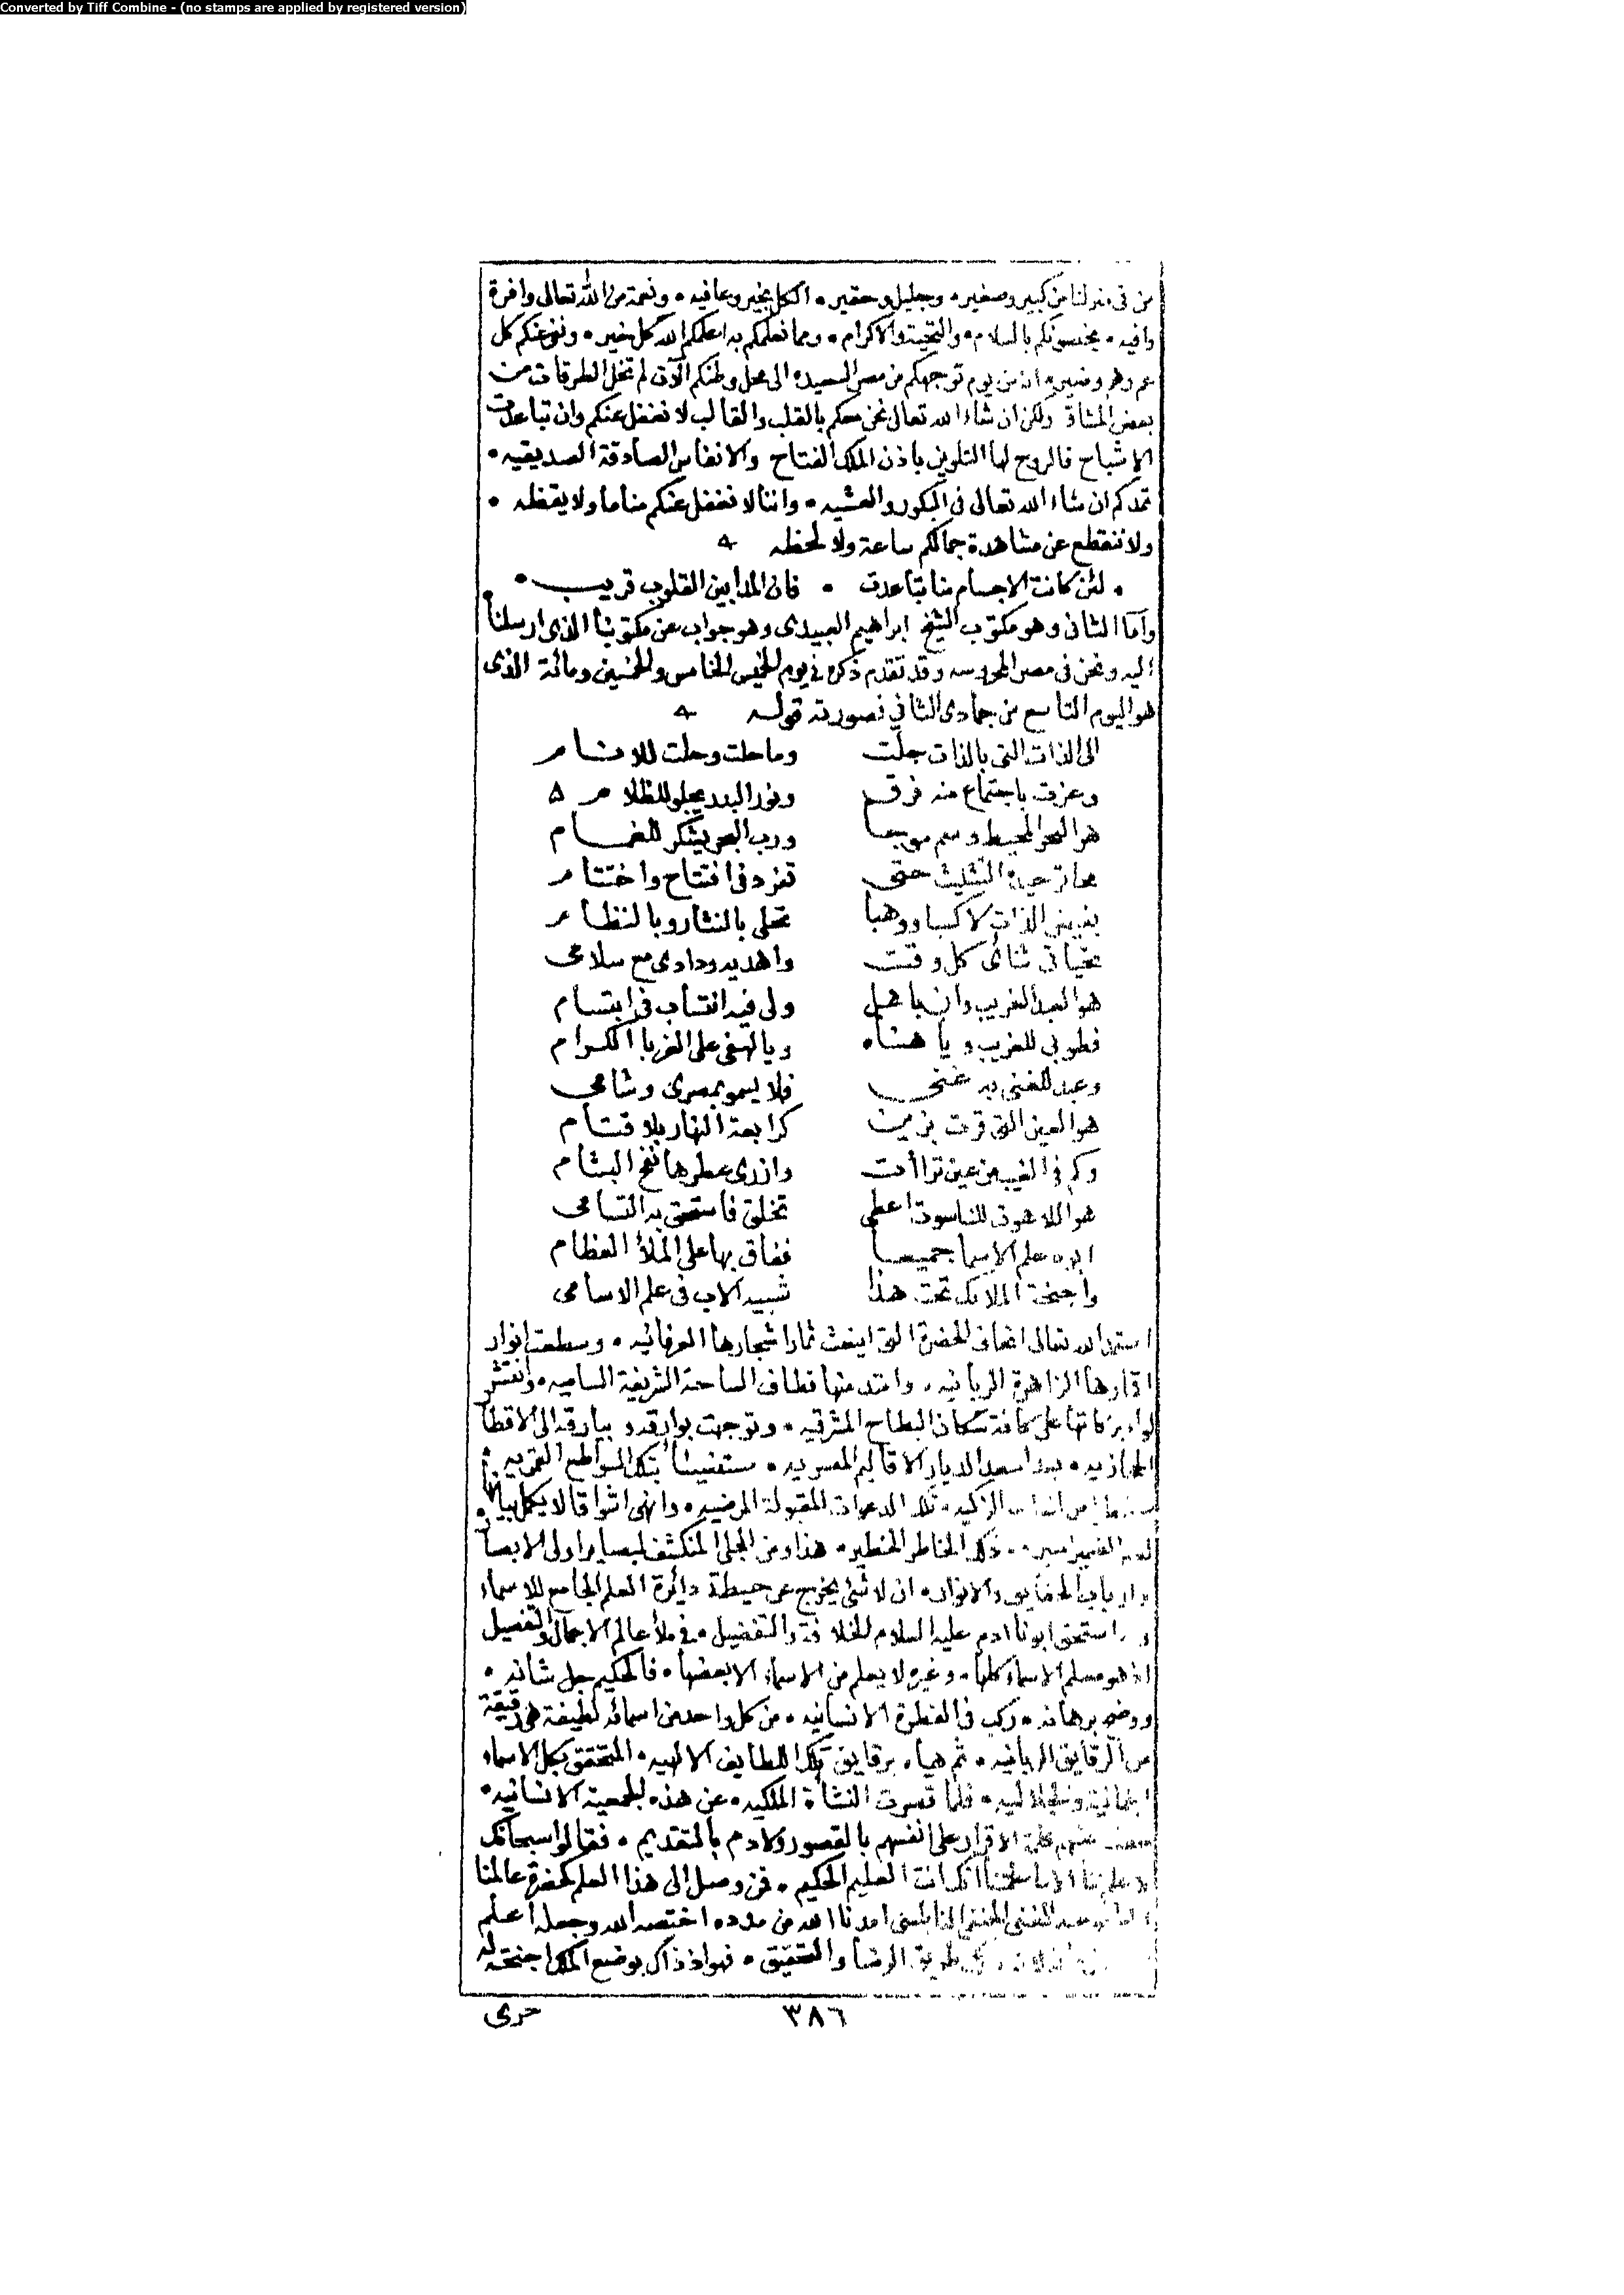 Converted by Tiff Combine - (no stamps are applied by registered version)
من فى منزلنا من كبير وصغير • وجليل وحقير • الكل بخير وعافيه • ونعمة من الله تعالى وافرة
وافيه • يخصونكم بالسلام • والتحية والاكرام • ومما نعلمكم به اعلمكم الله كل خير • ونفى عنكم كل
هم وضير • ان من يوم توجهكم من مصر السعيدة الى محل وطنكم الآن لم تخل الطرقات من
بعض المشاق ولكن ان شاء الله تعالى نحن معكم بالقلب والقالب لا نغفل عنكم وان تباعدت
الاشباح فالروح لها التلوين باذن الملك الفتاح والانفاس الصادقة الصديقيه •
تمدكم ان شاء الله تعالى فى البكور والعشيه • واننا لا نغفل عنكم مناما ولا يقظه •
ولا ننقطع عن مشاهدة جمالكم ساعة ولا لحظه
• لئن كانت الاجسام منا تباعدت • فان المدا بين القلوب قريب •
وأما الثانى وهو مكتوب الشيخ ابراهيم العبيدى وهو جواب عن مكتوبنا الذى ارسلنا
اليه ونحن فى مصر المحروسه وقد تقدم ذكره فى يوم الخميس الخامس والخمسين ومائة الذى
هو اليوم التاسع من جمادى الثانى فصورته قوله
الى الذات التى بالذات جلت وما حلت وحلت للانام
وعزت باجتماع منه فرق ونور البدر يجلو للظلام
هو البحر المحيط وسم موجا ورب البحر يشكر للغمام
محا توحيده التثليث حتى تفرد فى افتتاح واختتام
بفيض الذات لا كسبا ووهبا تحلى بالنثار وبالنظام
تحياتى ثنائى كل وقت واهديه ودادى مع سلامى
هو العبد الغريب وان باهل ولى فيه انتساب فى ابتسام
فطوبى للغريب ويا هناه ويا لهفى على الغربا الكرام
وعبد للغنى به غنى فلا يسمو بمصرى وشامى
هو العين التى قرت بزين كرابعة النهار بلا قتام
وكم فى الغيب من عين تراأت وازرى عطرها نفح البشام
هو اللاهوت للناسوت اعطى تخلق فاستحق به التسامى
ابوه علم الاسما جميعا ففاق بها على الملأ العظام
وأجنحة الملائك تحت هذا شبيه الاب فى علم الاسامى
استمد الله تعالى اتحافى الحضرة التى اينعت ثمار اشجارها العرفانيه • وسطعت انوار
اقمارها الزاهرة الربانيه • وامتد منها قطاف الساحة الشريفة الساميه • وانتشر
لواء بركاتها على كافة سكان البطاح المشرقيه • وتوجهت بوارقه وبيارقه الى الاقطار
الحجازيه • اسعد الديار الاقاليم المصريه • مستفيضا بتلك السواطع القمريه
الزكيه • تلك الدعوات المقبولة المرضيه • وانهى اشواقا لا يكمل بيانها
الضمير • ذلك الخاطر الخطير • هذا ومن الجلى المنكشف لبصاير اولى الابصار
وارباب الحقايق والانوار • ان لا شئ يخرج عن حيطة دائرة العلم الجامع للاسماء
استحق ابونا ادم عليه السلام للخلافة والتفضيل • فى ملأ عالم الاجمال والتفصيل
اذ هو معلم الاسماء كلها • وغيره لا يعلم من الاسماء الا بعضها • فالحكيم جل شانه •
ووضح برهانه • ركب فى الفطرة الانسانيه • من كل واحد من اسمائه لطيفة هى رقيقة
من الرقايق الربانيه • ثم هيأه برقايق تلك اللطايف الالهيه • التحقق بكل الاسماء
الجمالية والجلاليه • فلما قصرت النشأة الملكيه • عن هذه الجمعية الانسانيه •
منهم الاقرار على انفسهم بالقصور ولادم بالتقديم • فقالوا سبحانك
لا علم لنا الا ما علمتنا انك انت العليم الحكيم • فمن وصل الى هذا العلم كحضرة عالمنا
عبد الغنى الحنفى النابلسى امدنا الله من مدده اختصه الله وجعله اعلم
طريق الرضا والتحقيق • فهو اذ ذاك بوضع الملك اجنحته له
٣٨٦
حرى